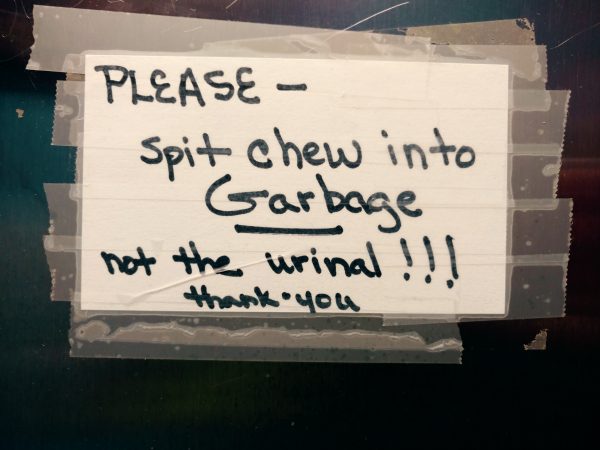 PLEASE -
spit chew into
Garbage
not the urinal!!!
thank-you